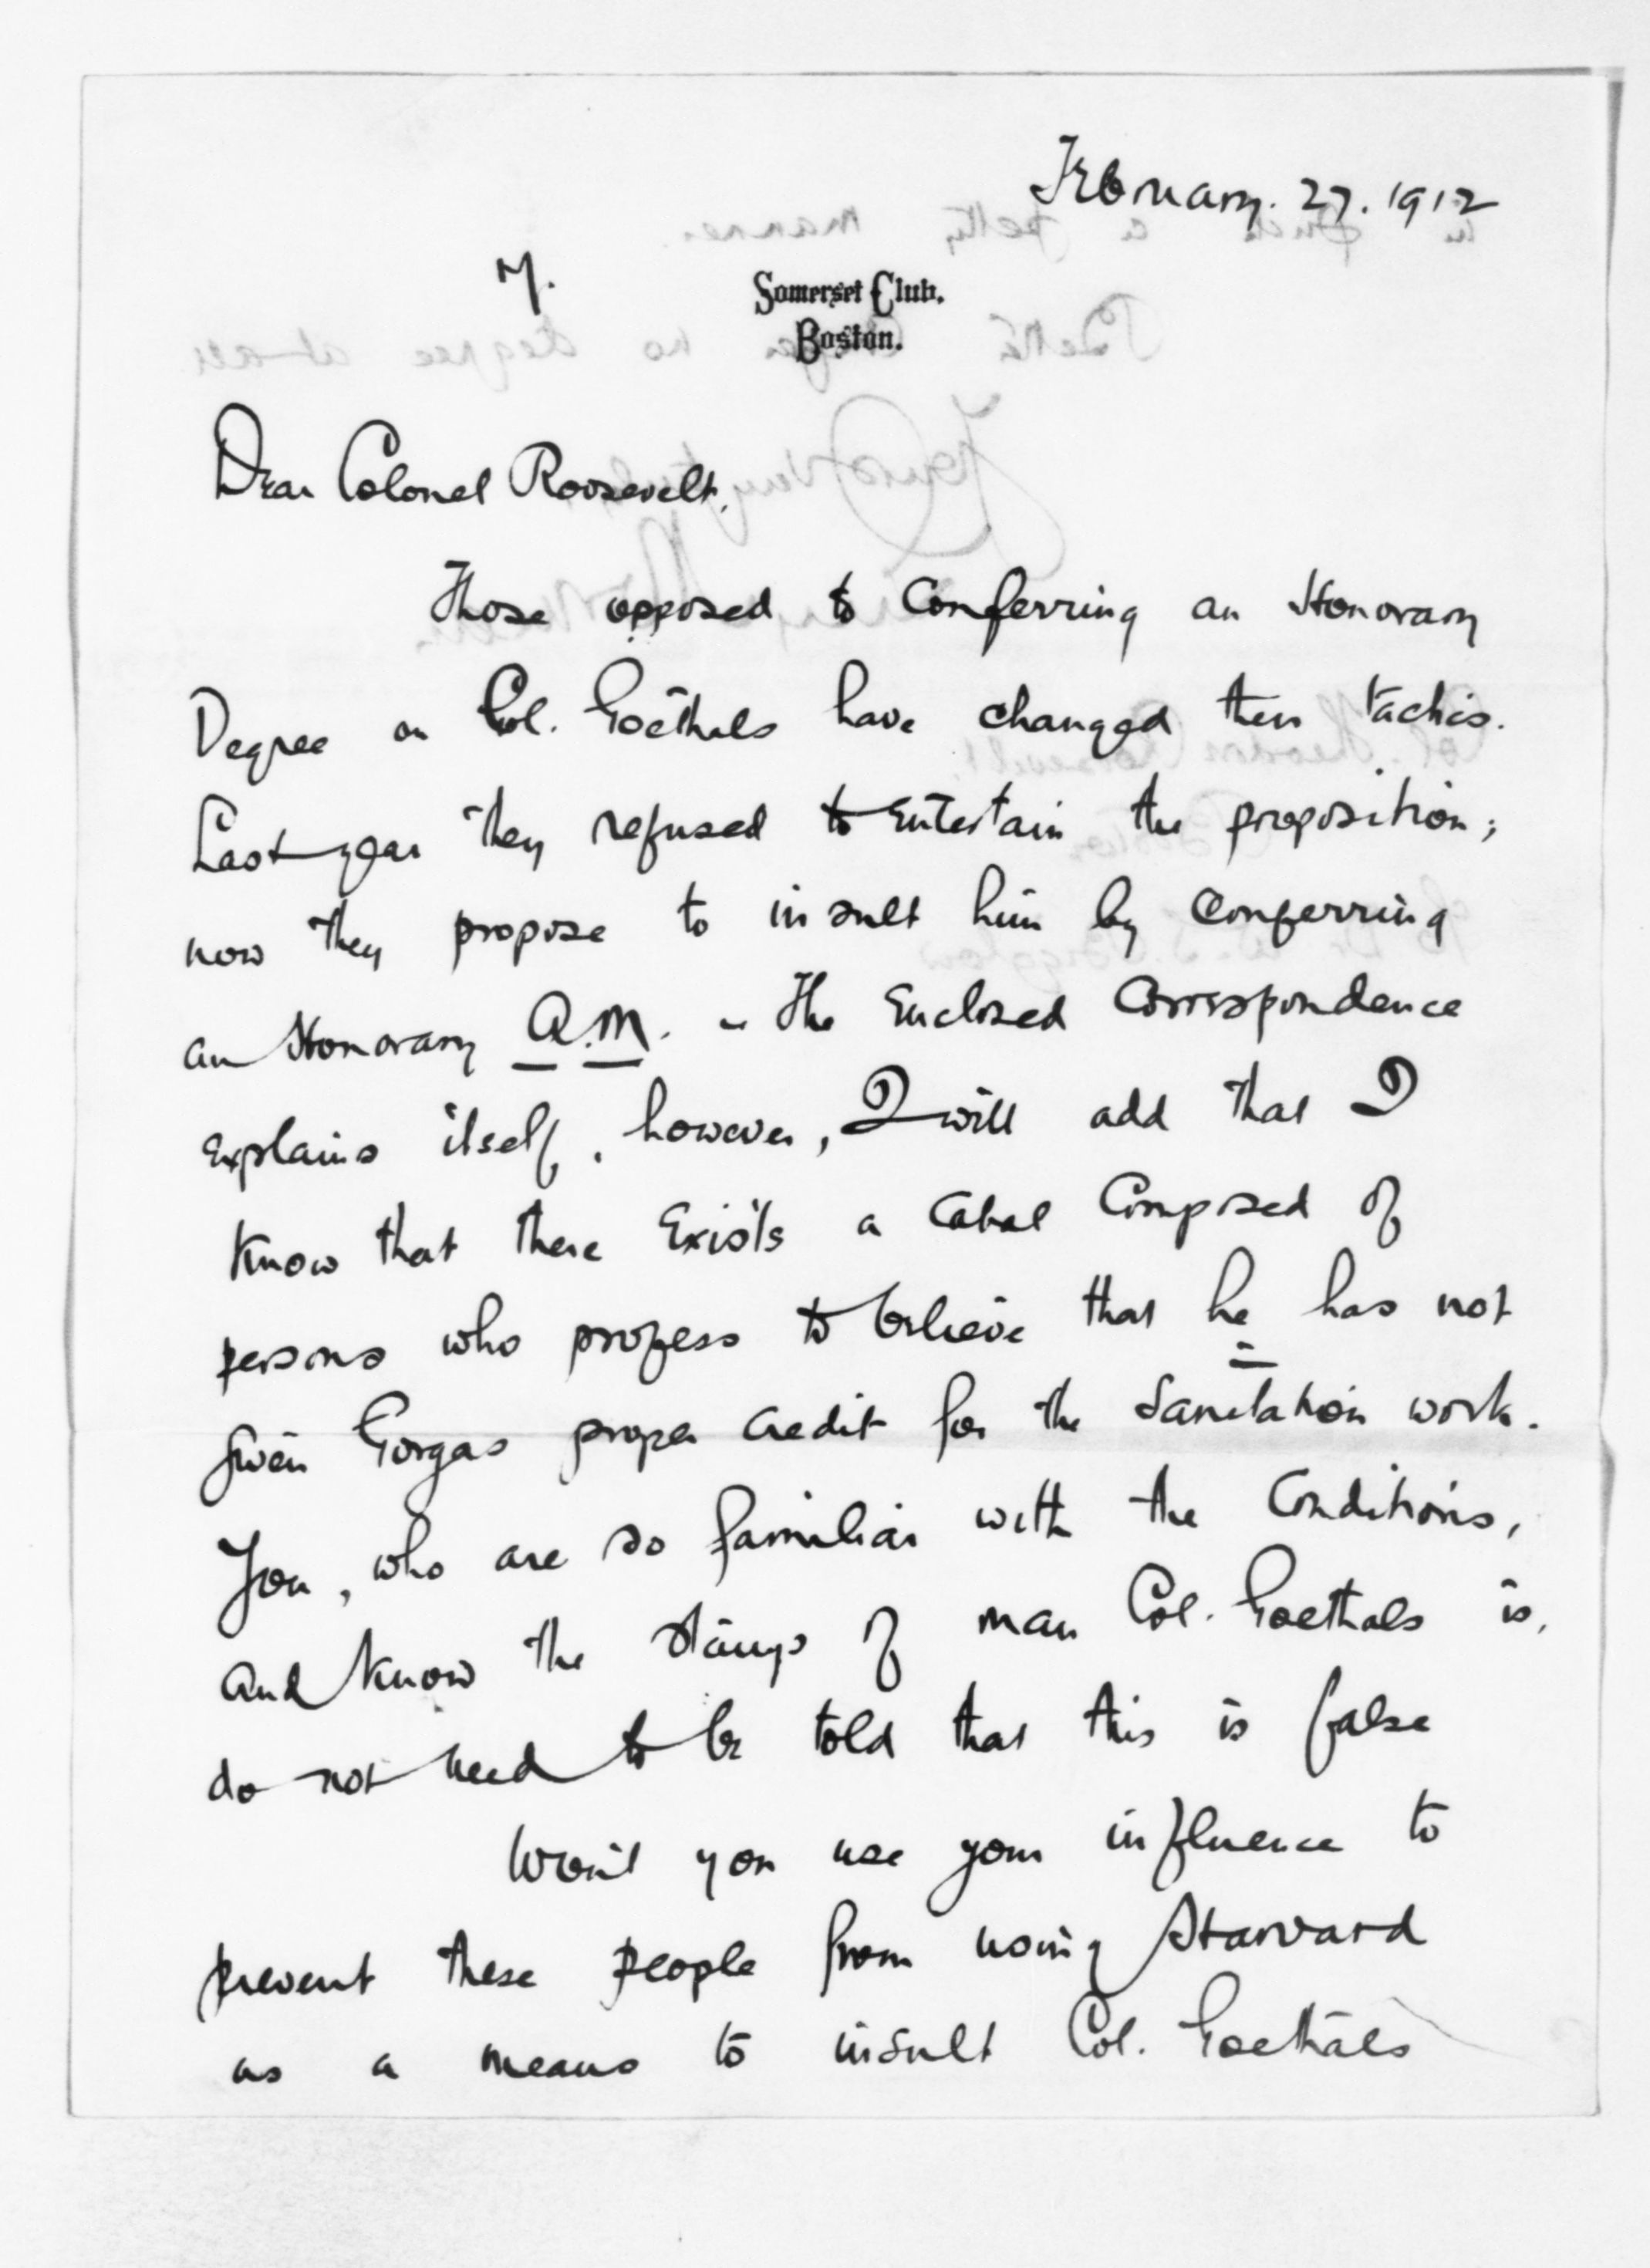 February. 27. 1912
M.
Somerset Club.
Boston.
Dear Colonel Roosevelt,
Those opposed to Conferring an Honorary
Degree on Col. Goethals have changed their tactics.
Last year they refused to entertain the proposition;
now they propose to insult him by Conferring
an Honorary A.M. - The Enclosed Correspondence
explains itself, however, I will add that I
know that there Exists a Cabal Composed of
persons who profess to believe that he has not
given Gorgas proper credit for the Sanitation work.
You, who are so familiar with the Conditions,
and know the stamp of man Col. Goethals is,
do not need to be told that this is false
Won't you use your influence to
prevent these people from using Harvard
as a means to insult Col. Goethals